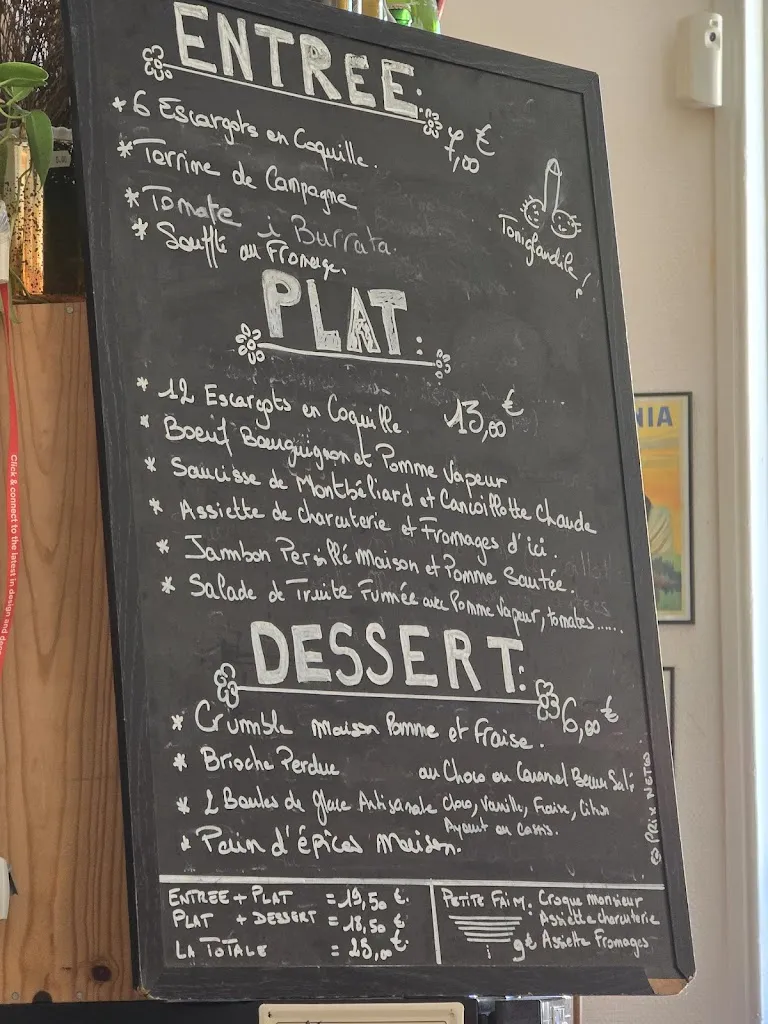 ENTREE:
* 6 Escargots en Coquille. 7,00 €
* Terrine de Campagne
* Tomate i Burrata.
* Soufflé au Fromage.
PLAT:
* 12 Escargots en Coquille. 13,00 €
* Boeuf Bourguignon et Pomme Vapeur
* Saucisse de Montbéliard et Cancoillotte Chaude
* Assiette de charcuterie et Fromages d'ici.
* Jambon Persillé Maison et Pomme Sautée.
* Salade de Truite Fumée avec Pomme Vapeur, tomates.....
DESSERT: 6,00 €
* Crumble Maison Pomme et Fraise.
* Brioche Perdue au Choco ou Caramel Beurre Salé
* 2 Boules de glace Artisanale Choco, Vanille, Fraise, Citron
Yaourt ou Cassis.
* Pain d'épices Maison.
PRIX NETS
ENTREE + PLAT = 19,50 €.
PLAT + DESSERT = 18,50 €
LA TOTALE = 25,00 €.
PETITE FAIM. Croque monsieur
Assiette charcuterie
9€ Assiette Fromages
NIA
Click & connect to the latest in design and